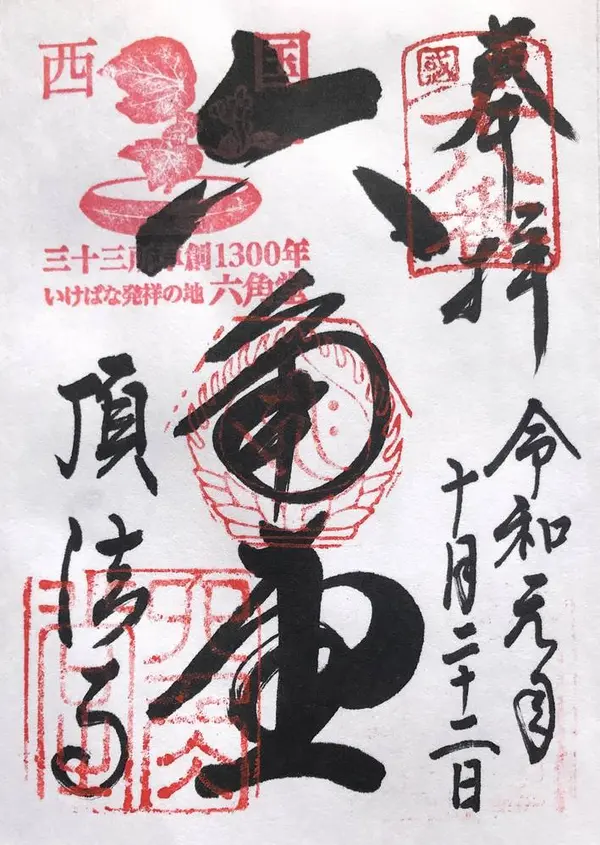 奉拝
令和元年
十月二十二日
六角堂
頂法寺
西国
三十三所草創1300年
いけばな発祥の地 六角堂